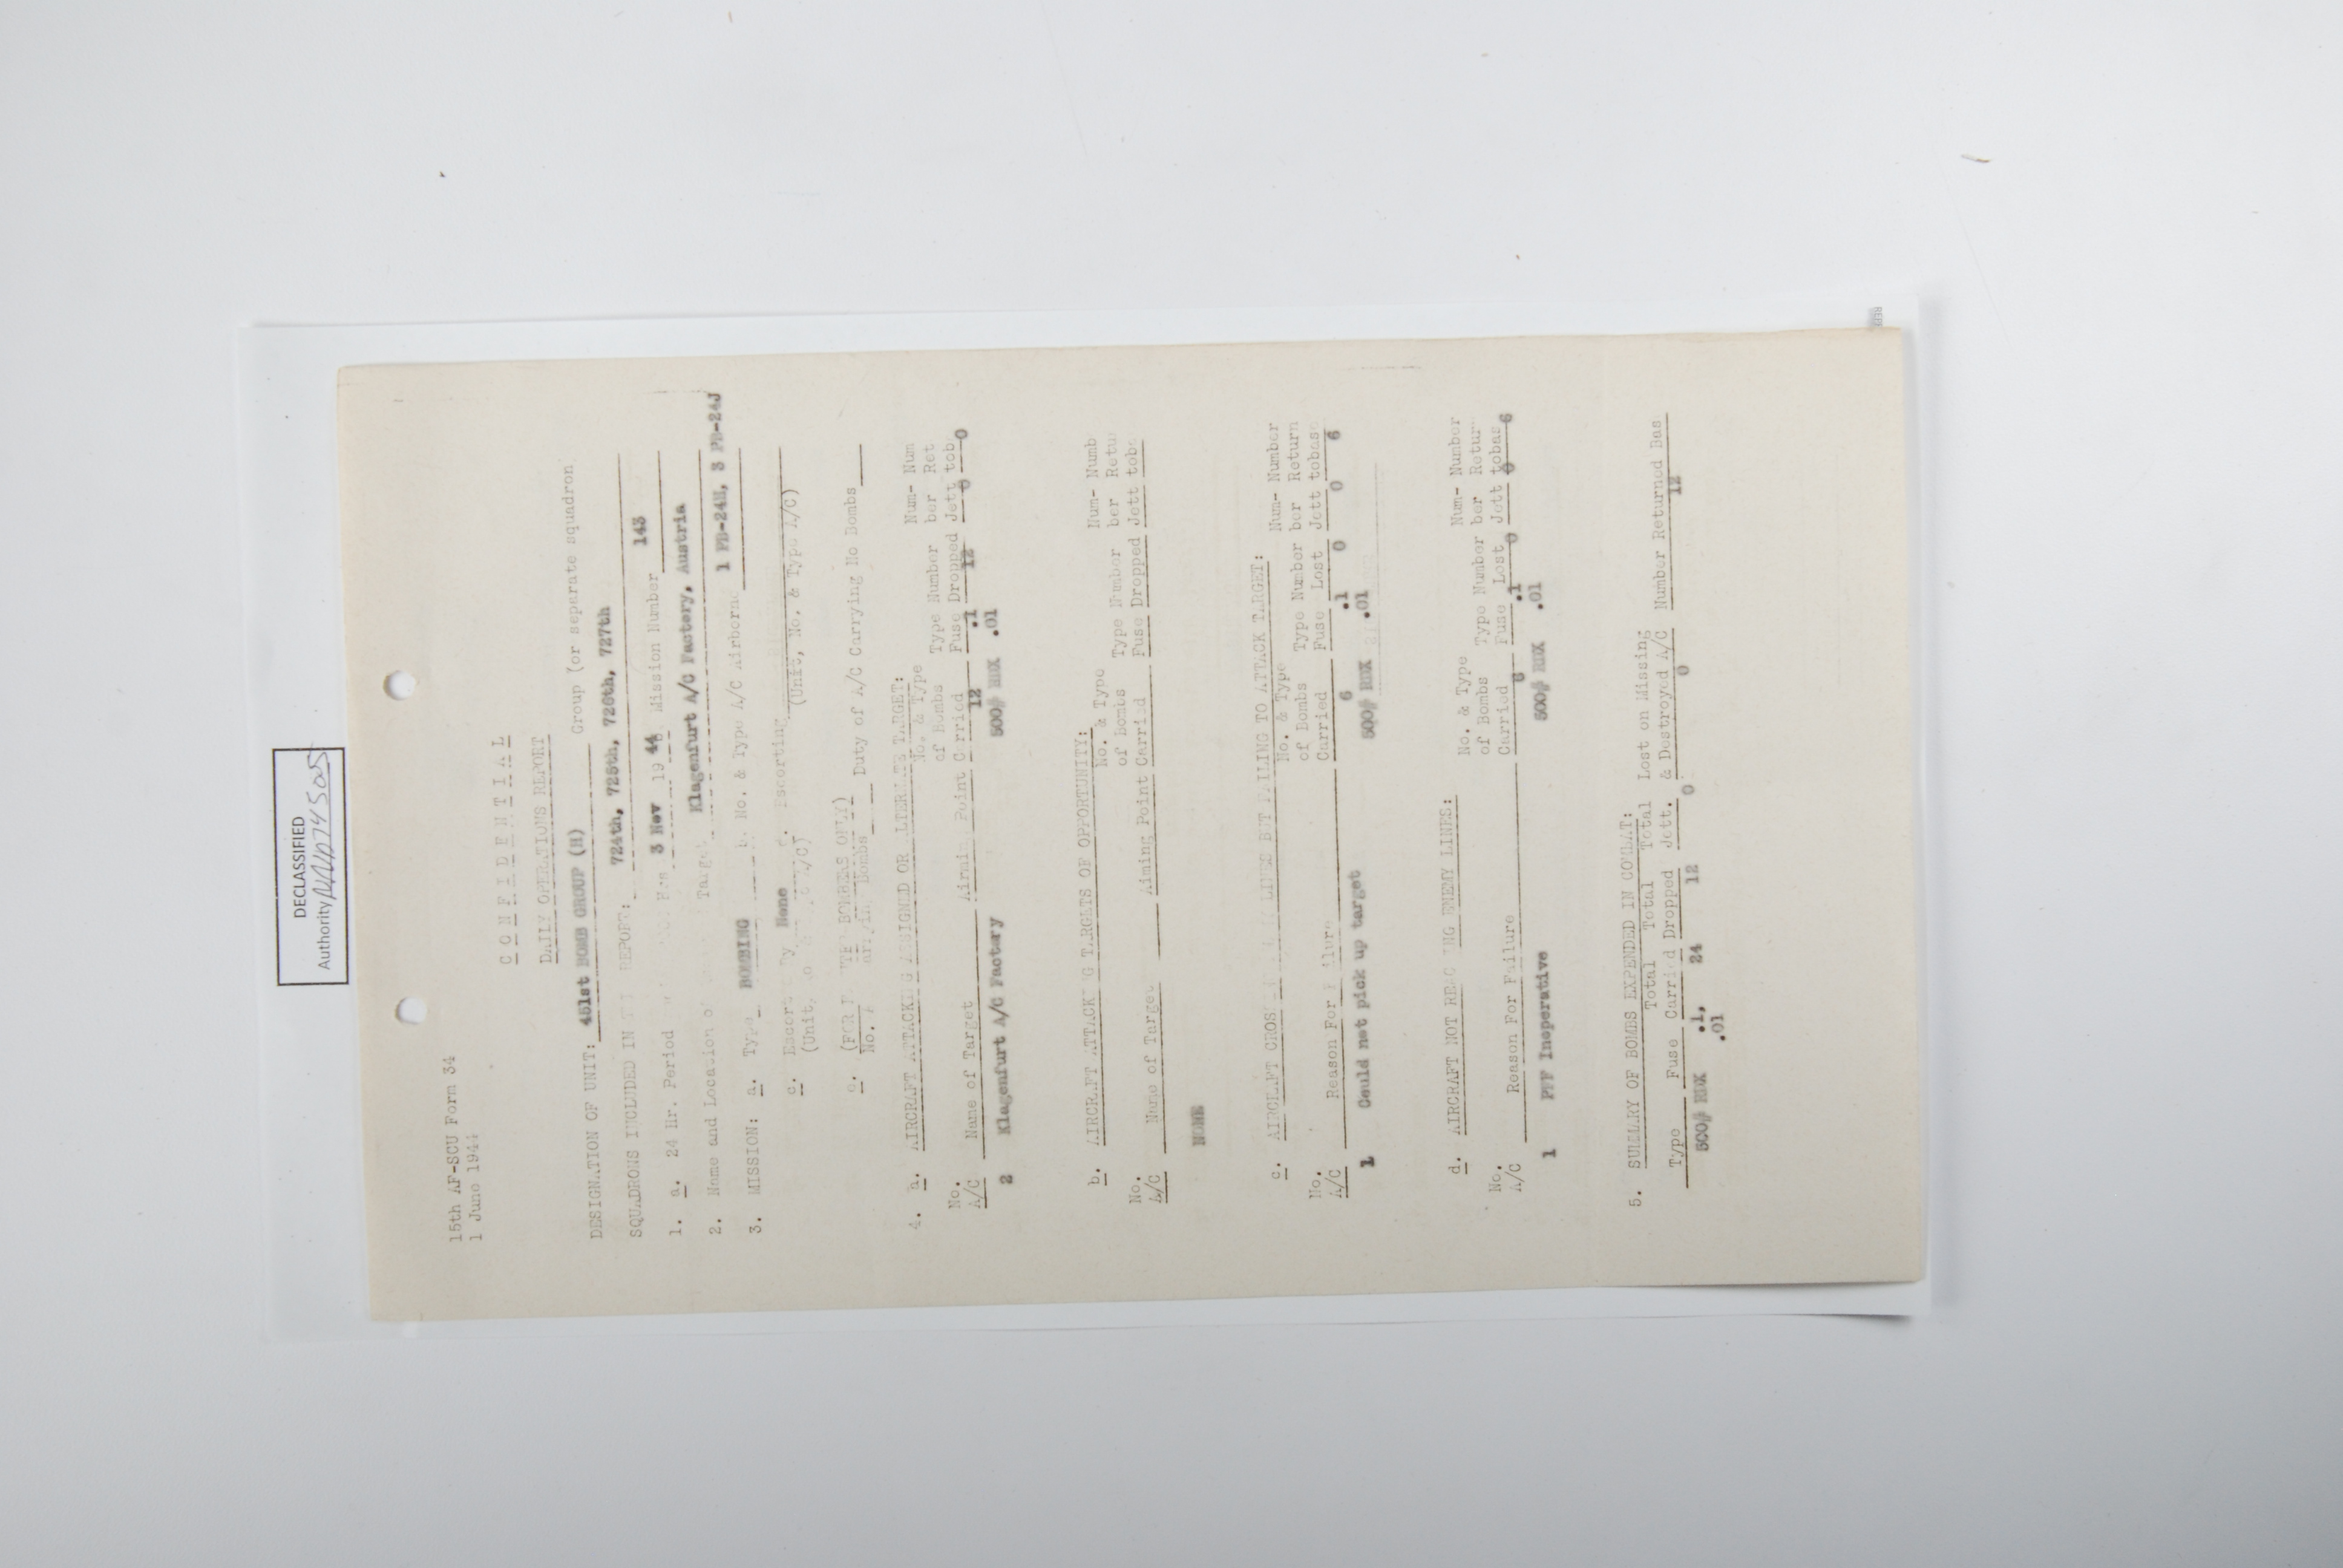 DECLASSIFIED
Authority NND 745005
15th AF-SCU Form 34
1 June 1944
C O N F I D E N T I A L
DAILY OPERATIONS REPORT
DESIGNATION OF UNIT: 451st BOMB GROUP (H) Group (or separate squadron
SQUADRONS INCLUDED IN REPORT: 724th, 725th, 726th, 727th
1. a. 24 Hr. Period 3 Nov 1944 Mission Number 143
2. Name and Location of Target Klagenfurt A/C Factory, Austria
3. MISSION: a. Type BOMBING b. No. & Type A/C Airborne 1 PB-24H, 3 PB-24J
c. Escort By None d. Escorting
(Unit, A/C) (Unit, No. & Type A/C)
e. (FOR BOMBERS ONLY)
No. Bombs Duty of A/C Carrying No Bombs
4. a. AIRCRAFT ATTACKING ASSIGNED OR ALTERNATE TARGET:
No. & Type Num- Num
of Bombs Type Number ber Ret
No. A/C Name of Target Aiming Point Carried Fuse Dropped Jett tob
12 .1 12 0 0
2 Klagenfurt A/C Factory 500# RDX .01
b. AIRCRAFT ATTACKING TARGETS OF OPPORTUNITY:
No. & Type Num- Numb
of Bombs Type Number ber Retu
No. A/C Name of Target Aiming Point Carried Fuse Dropped Jett toba
NONE
c. AIRCRAFT CROSSING LINES BUT FAILING TO ATTACK TARGET:
No. & Type Num- Number
of Bombs Type Number ber Return
No. A/C Reason For Failure Carried Fuse Lost Jett tobase
6 .1 0 0 6
1 Could not pick up target 500# RDX .01
d. AIRCRAFT NOT REACHING ENEMY LINES:
No. & Type Num- Number
of Bombs Type Number ber Retur
No. A/C Reason For Failure Carried Fuse Lost Jett tobas
6 .1 0 0 6
1 PFF Inoperative 500# RDX .01
5. SUMMARY OF BOMBS EXPENDED IN COMBAT:
Total Total Total Lost on Missing
Type Fuse Carried Dropped Jett. & Destroyed A/C Number Returned Bas
500# RDX .1, 24 12 0 0 12
.01